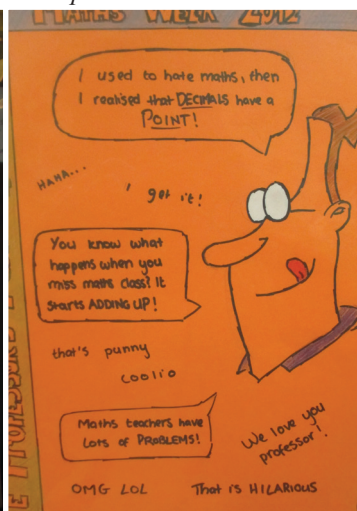 MATHS WEEK 2012
I used to hate maths, then
I realised that DECIMALS have a
POINT!
HAHA...
I get it!
You know what
happens when you
miss maths class? It
starts ADDING UP!
that's punny
coolio
Maths teachers have
Lots of PROBLEMS!
We love you
professor!
OMG LOL
That is HILARIOUS